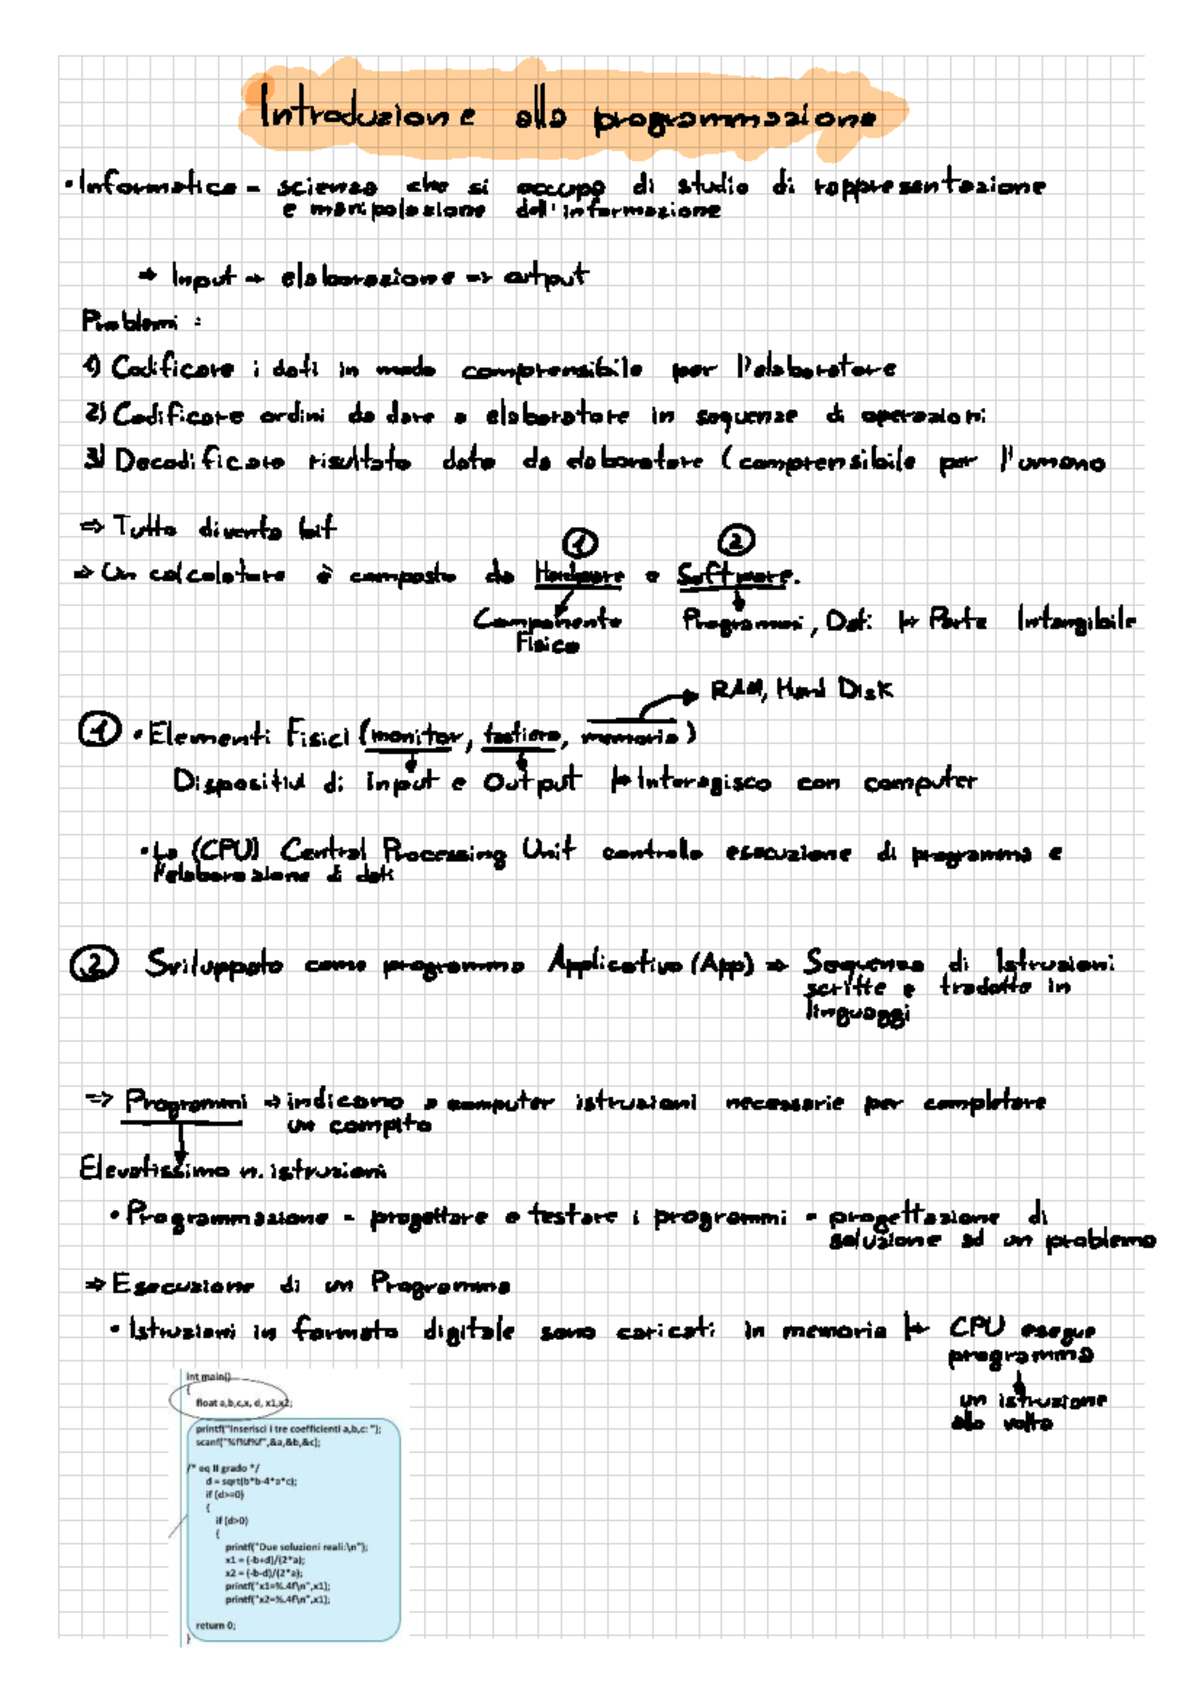 Introduzione alla programmazione
• Informatica - scienza che si occupa di studio di rappresentazione
e manipolazione dell'informazione
⇒ Input → elaborazione => output
Problemi :
1) Codificare i dati in modo comprensibile per l'elaboratore
2) Codificare ordini da dare a elaboratore in sequenze di operazioni
3) Decodificare risultato dato da elaboratore (comprensibile per l'umano
=> Tutto diventa bit
① ②
=> Un calcolatore è composto da Hardware e Software.
Componente Programmi, Dati ↦ Parte Intangibile
Fisica
RAM, Hard Disk
① • Elementi Fisici (monitor, tastiera, memoria)
Dispositivi di Input e Output ↦ Interagisco con computer
• La (CPU) Central Processing Unit controlla esecuzione di programma e
l'elaborazione di dati
② Sviluppato come programma Applicativo (App) => Sequenza di Istruzioni
scritte e tradotte in
linguaggi
=> Programmi → indicano a computer istruzioni necessarie per completare
un compito
Elevatissimo n. istruzioni
• Programmazione - progettare e testare i programmi - progettazione di
soluzione ad un problema
=> Esecuzione di un Programma
• Istruzioni in formato digitale sono caricati in memoria ↦ CPU esegue
programma
un istruzione
alla volta
int main()
{
float a,b,c,x, d, x1,x2;
printf("Inserisci i tre coefficienti a,b,c: ");
scanf("%f%f%f",&a,&b,&c);
/* eq II grado */
d = sqrt(b*b-4*a*c);
if (d>=0)
{
if (d>0)
{
printf("Due soluzioni reali:\n");
x1 = (-b+d)/(2*a);
x2 = (-b-d)/(2*a);
printf("x1=%.4f\n",x1);
printf("x2=%.4f\n",x1);
return 0;
}